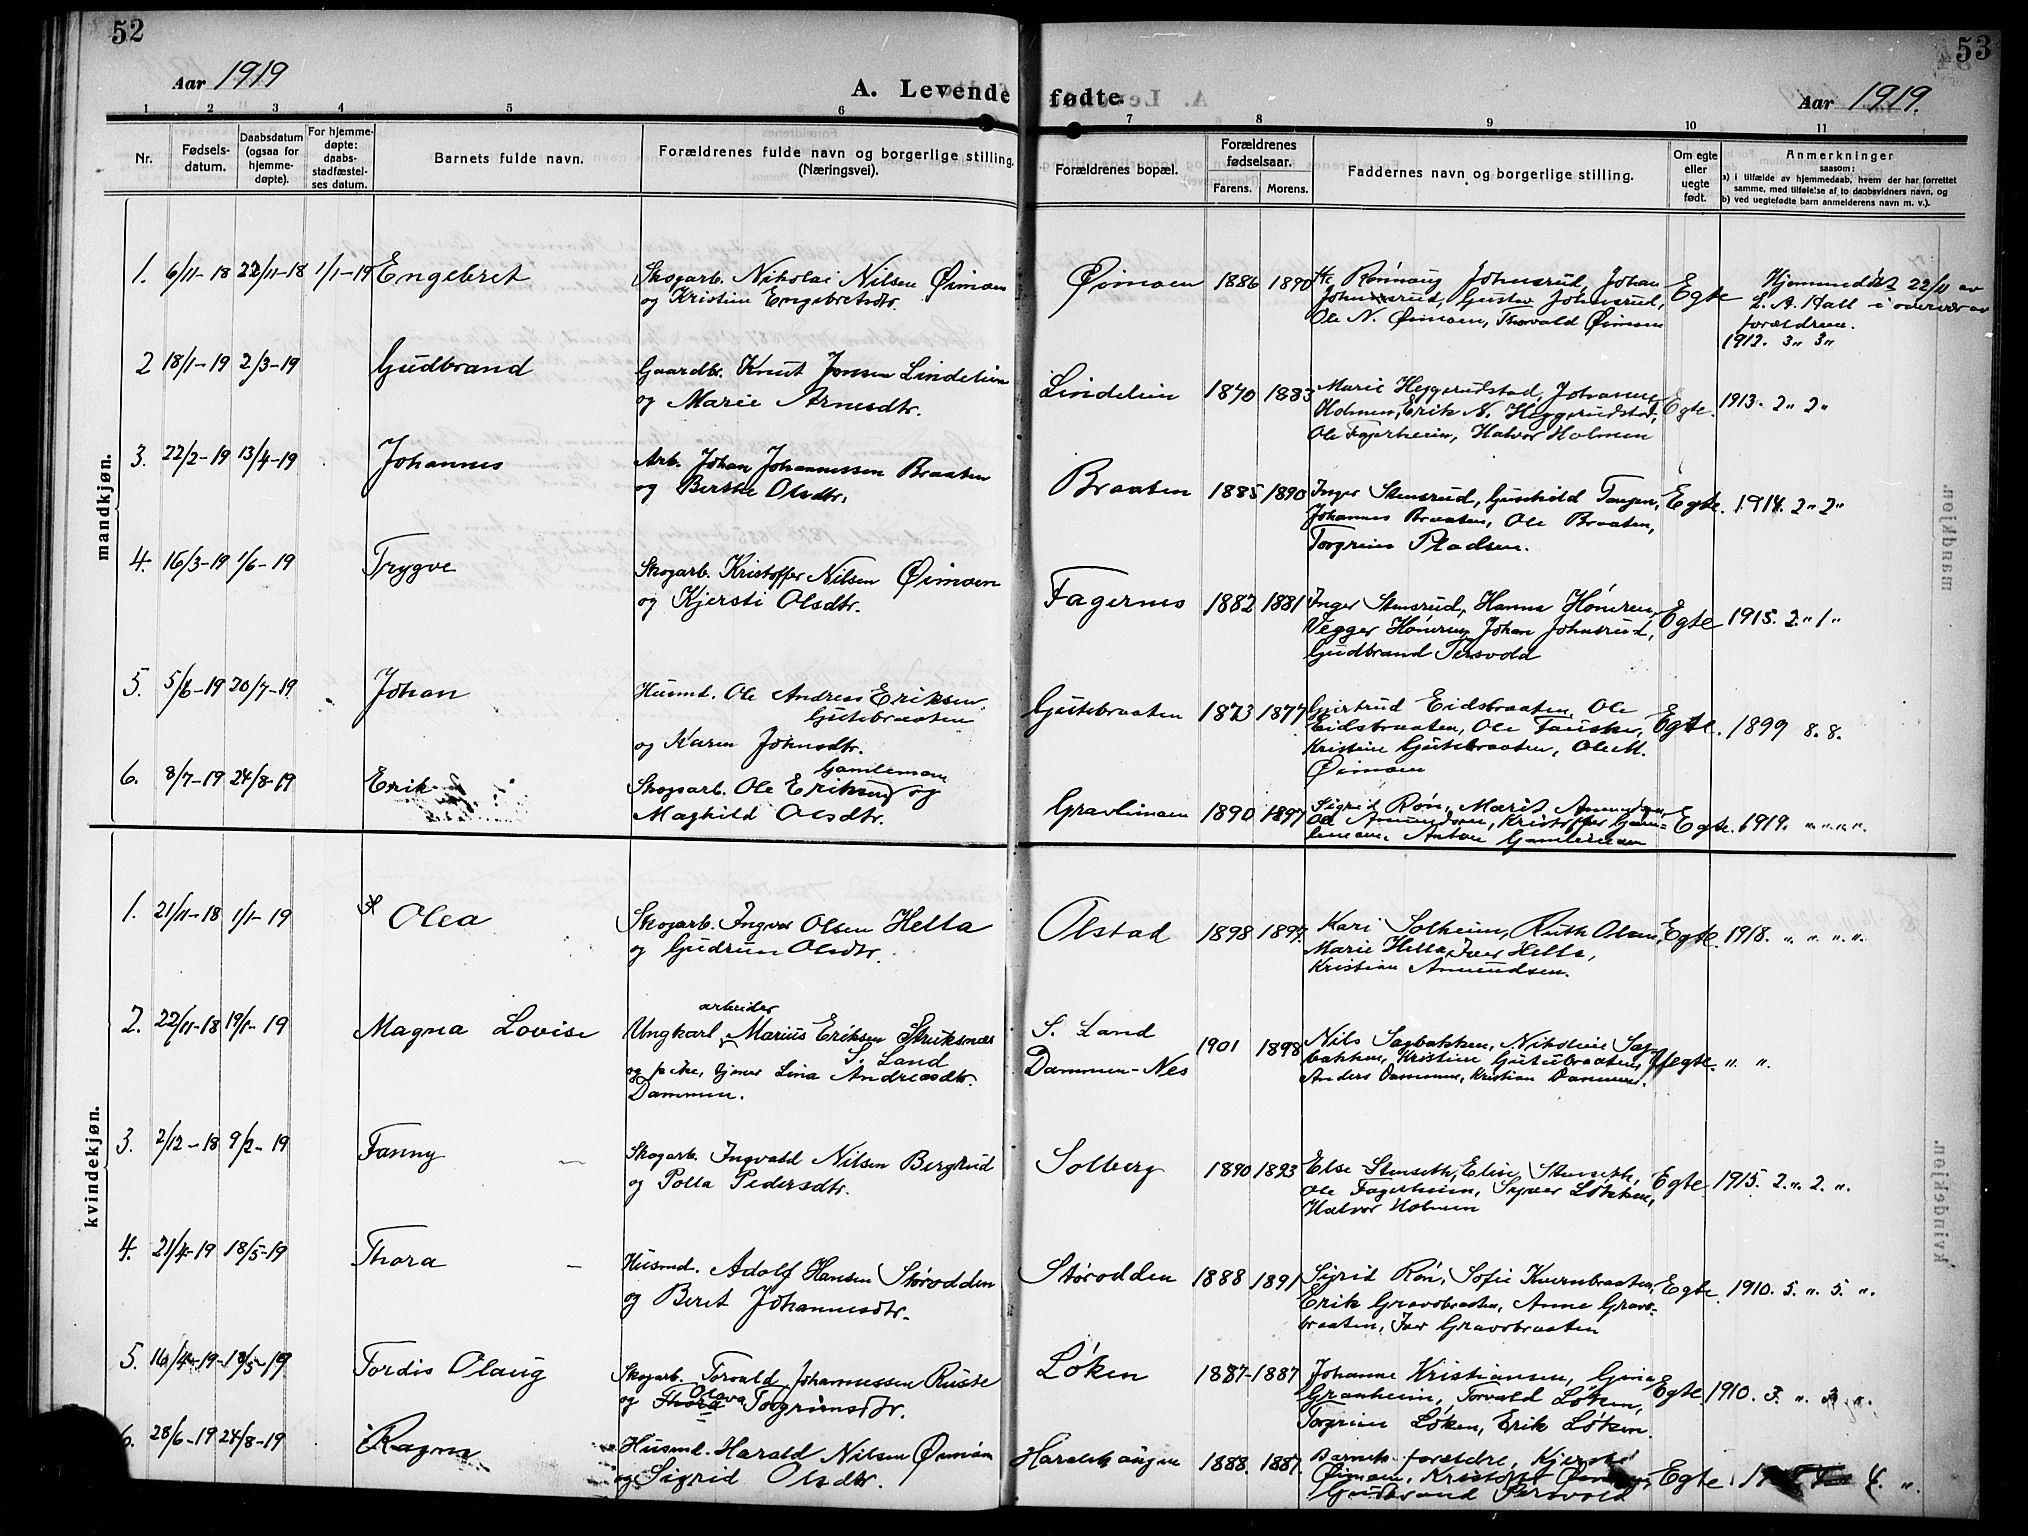 52
53
Aar 1919
A. Levende fødte.
Aar 1919.
1 2 3 4 5 6 7 8 9 10 11
Nr.
Fødsels-
datum.
Daabsdatum
(ogsaa for
hjemme-
døpte).
For hjemme-
døpte:
daabs-
stadfæstel-
ses datum.
Barnets fulde navn.
Forældrenes fulde navn og borgerlige stilling.
(Næringsvei).
Forældrenes bopæl.
Forældrenes
fødselsaar.
Farens. Morens.
Faddernes navn og borgerlige stilling.
Om egte
eller
uegte
født.
Anmerkninger
saasom:
a) i tilfælde av hjemmedaab, hvem der har forrettet
samme, med tilføielse af to daabsvidners navn, og
b) ved uegtefødte barn anmelderens navn m. v.).
mandkjøn.
1. 6/11-18 22/11-18 1/1-19 Engebret
Skogarb. Nikolai Nilsen Øimoen
og Kristine Engebretsdtr.
Øimoen 1886 1890
Rønnaug Johnsrud, Johan
Johnsrud, Gustav Johnsrud,
Ole N. Øimoen, Thorvald Øimoen
Egte
Hjemmedøbt 22/11 av
L. A. Hall i overvær av
forældrene.
1912. 3 " 3 "
2 18/1-19 2/3-19 Gudbrand
Gaardbr. Knut Jonsen Lindelien
og Marie Arnesdtr.
Lindelien 1870 1883
Marie Heggerudstad, Johanne
Holmen, Erik N. Heggerudstad,
Ole Fagerheim, Halvor Holmen
Egte. 1913. 2 " 2 "
3. 22/2-19 13/4-19 Johannes
Arb. Johan Johannessen Braaten
og Berthe Olsdtr.
Braaten 1885 1890
Inger Stensrud, Gunhild Tangen,
Johannes Braaten, Ole Braaten,
Torgrim Pladsen.
Egte. 1914. 2 " 2 "
4. 16/3-19 1/6-19 Trygve
Skogarb. Kristoffer Nilsen Øimoen
og Kjersti Olsdtr.
Fagernes 1882 1881
Inger Stensrud, Hanna Hönerud,
Vegger Hönerud, Johan Johnsrud,
Gudbrand Persvold
Egte 1915. 2. " 1 "
5. 5/6-19 20/7-19 Johan
Husmd. Ole Andreas Eriksen
Gutebraaten
og Karen Johnsdtr.
Gutebraaten 1873 1877
Gjertrud Eidsbraaten, Ole
Eidsbraaten, Ole
Kristine Gutebraaten, Ole M.
Øimoen
Egte. 1899 8. 8.
6. 8/7-19 24/8-19 Erik
Gamlemoen
Skogarb. Ole Eriksen og
Maghild Olsdtr.
Gravlimoen 1890 1897
Sigrid Røn, Marit Amundsen,
Ole Amundsen, Kristoffer Gam-
lemoen, Anton Gamlemoen
Egte. 1919. " " " "
kvindekjøn.
1. 21/11-18 1/1-19 Olea
Skogarb. Ingvar Olsen Hella
og Gudrun Olsdtr.
Olstad 1898 1897.
Kari Solheim, Ruth Olsen,
Marie Hella, Iver Hella,
Kristian Amundsen.
Egte. 1918. " " " "
2. 22/11-18 19/1-19 Magna Lovise
arbeider
Ungkarl Marius Eriksen Struksnæs
S. Land
og pike, Lina Andreasdtr.
Dammen.
S. Land
Dammen-Nes
1901 1898
Nils Sagbakken, Nikoline Sag-
bakken, Kristine Gutubraaten,
Anders Dammen, Kristian Dammen.
Uegte. " "
3. 2/12-18 9/2-19 Fanny
Skogarb. Ingvald Nilsen Bergrud
og Polla Pedersdtr.
Solberg 1890 1893
Else Stenseth, Eline Stenseth,
Ole Fagerheim, Syver Løkken,
Halvor Holmen
Egte 1915. 2. " 2. "
4. 21/4-19 18/5-19 Thora
Husmd. Adolf Hansen Störodden
og Beret Johannesdtr.
Störodden 1888 1891
Sigrid Røn, Sofie Kvernbraaten,
Erik Gravsbraaten, Anne Gravs-
braaten, Iver Gravsbraaten
Egte. 1910. 5. " 5. "
5. 16/4-19 18/5-19 Tordis Olaug
Skogarb. Torvald Johannessen Ruste
Olava
og Thora Torgrimsdtr.
Løken 1887 1887
Johanne Kristiansen, Gina
Granheim, Torvald Löken,
Torgrim Löken, Erik Löken.
Egte. 1910. 3. " 3. "
6. 28/6-19 24/8-19 Ragna
Husmd. Harald Nilsen Øimoen
og Sigrid Olsdtr.
Haraldshaugen 1888. 1887.
Barnets forældre, Kjersti
Øimoen, Kristoffer Øimoen,
Gudbrand Persvold
Egte. 4. "